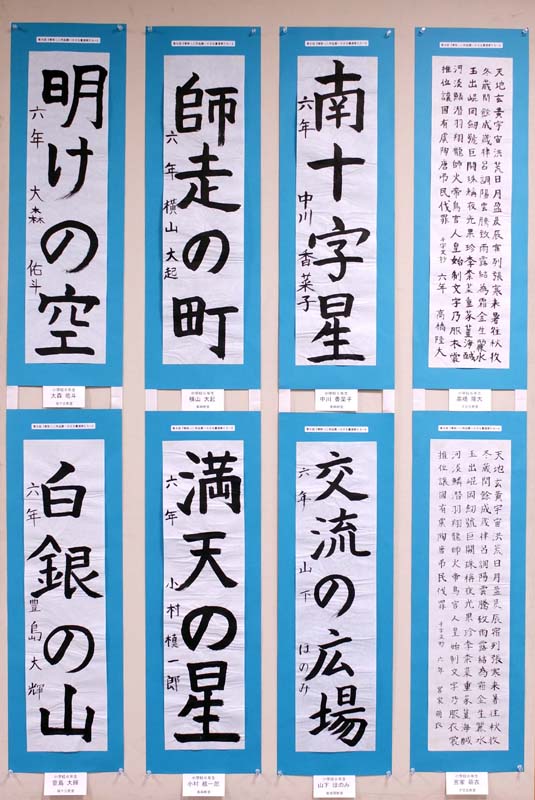 明けの空
六年 大森 佑斗
小学校6年生
大森 佑斗
師走の町
六年 横山 大起
小学校6年生
横山 大起
南十字星
六年 中川 香菜子
小学校6年生
中川 香菜子
天地玄黄宇宙洪荒日月盈昃辰宿列張寒来暑往秋收
冬蔵閏餘成歳律呂調陽雲騰致雨露結為霜金生麗水
玉出崐岡劔號巨闕珠稱夜光果珍李柰菜重芥薑海鹹
河淡鱗潜羽翔龍師火帝鳥官人皇始制文字乃服衣裳
推位讓國有虞陶唐弔民伐罪 千字文抄 六年 高橋隆大
小学校6年生
高橋 隆大
白銀の山
六年 豊島 大輝
小学校6年生
豊島 大輝
満天の星
六年 小村 槙一郎
小学校6年生
小村 槙一郎
交流の広場
六年 山下 ほのみ
小学校6年生
山下 ほのみ
天地玄黄宇宙洪荒日月盈昃辰宿列張寒来暑往秋收
冬蔵閏餘成歳律呂調陽雲騰致雨露結為霜金生麗水
玉出崐岡劔號巨闕珠稱夜光果珍李柰菜重芥薑海鹹
河淡鱗潜羽翔龍師火帝鳥官人皇始制文字乃服衣裳
推位讓國有虞陶唐弔民伐罪 千字文抄 六年
小学校6年生